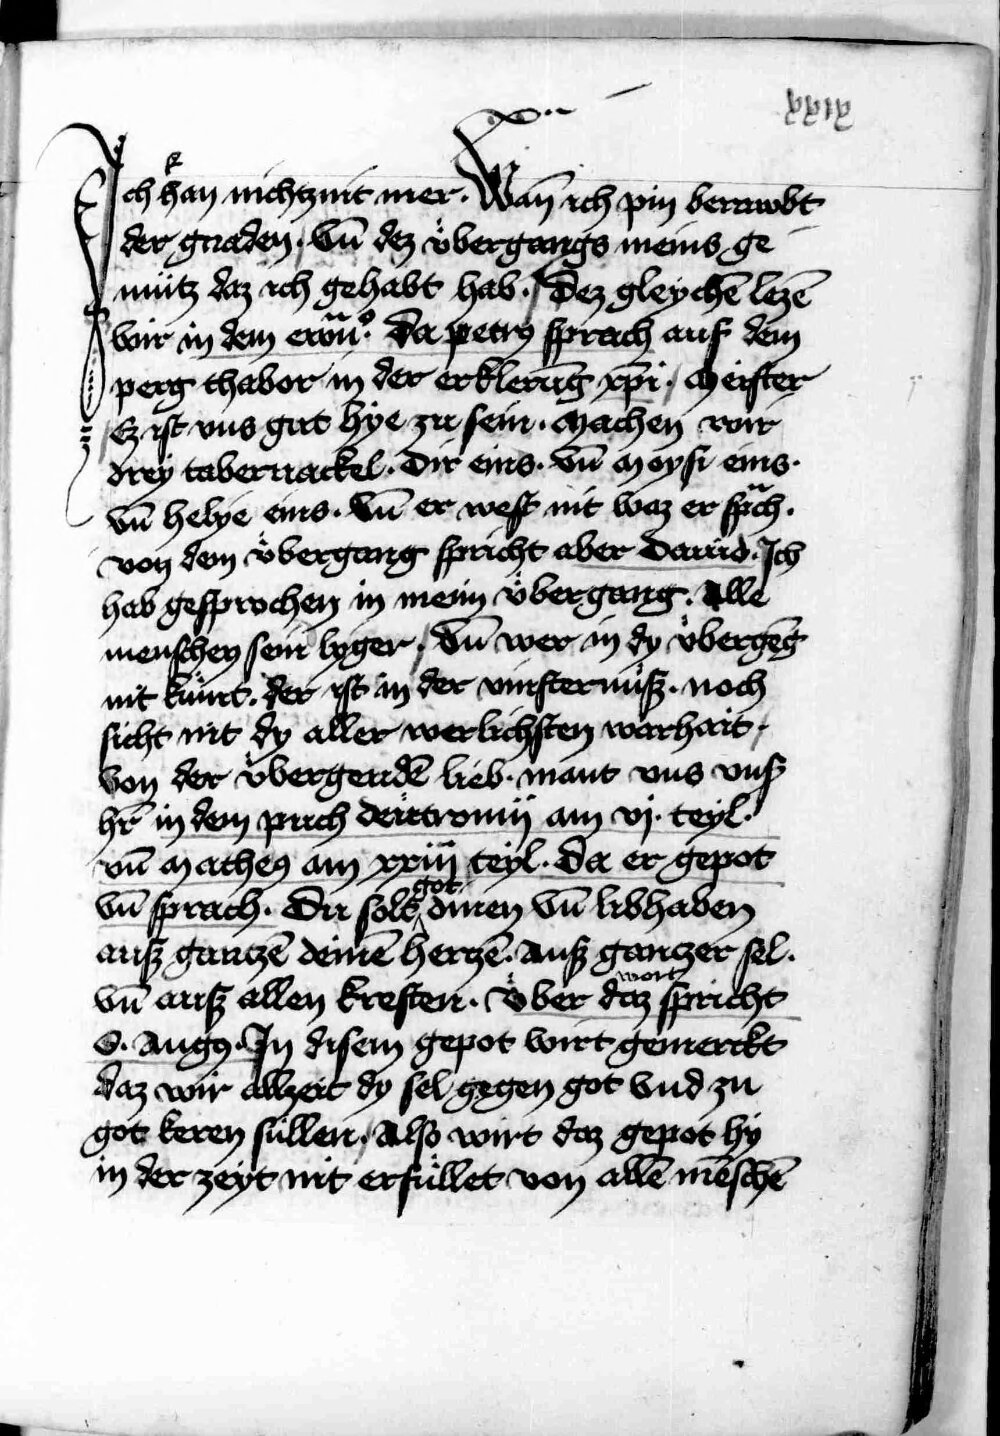 xxix
Ich kan nichtznit mer. Wan̄ ich pin berawbt
der gnaden / Vn̄ dez vͤbergangs meins ge
mütz daz ich gehabt hab. / Dez gleychē lezē
wir in dem Da petrꝰ sprach auf dem
perg thabor in der erklerūg xp̄i / Meister
Ez ist vns gut hye zu sein. Machen wir
drey tabernackel. Dir eins. Vn̄ Moysi eins.
Vn̄ helye eins. Vn̄ er west nit waz er spͣch.
von dem vͤbergang spricht aber Dauid. Ich
hab gesprochen in meim vͤbergang. Alle
menschen sein lyger / Vn̄ wer in dy vͤbergēg
nit kümt. der ist in der vinsternüsz. noch
sicht nit dy aller werlichsten warhait.
Von der vͤbergendē lieb. mant vns vnsz
hr̄ in dem puch deutromij am vj. teyl.
vn̄ Matheꝰ am xxiij teyl. Da er gepot
Vn̄ sprach. Du solt got dinen Vn̄ libhaben
ausz gantzē deinē hertzē. Ausz gantzer sel.
Vn̄ ausz allen kreften. Vͤber daz wort spricht
S. Augꝰ. In disem gepot wirt gemerckt
daz wir allzeit dy sel gegen got Vnd zu
got keren süllen / Also wirt daz gepot hy
in der zeyt nit erfüllet von allē mēschē